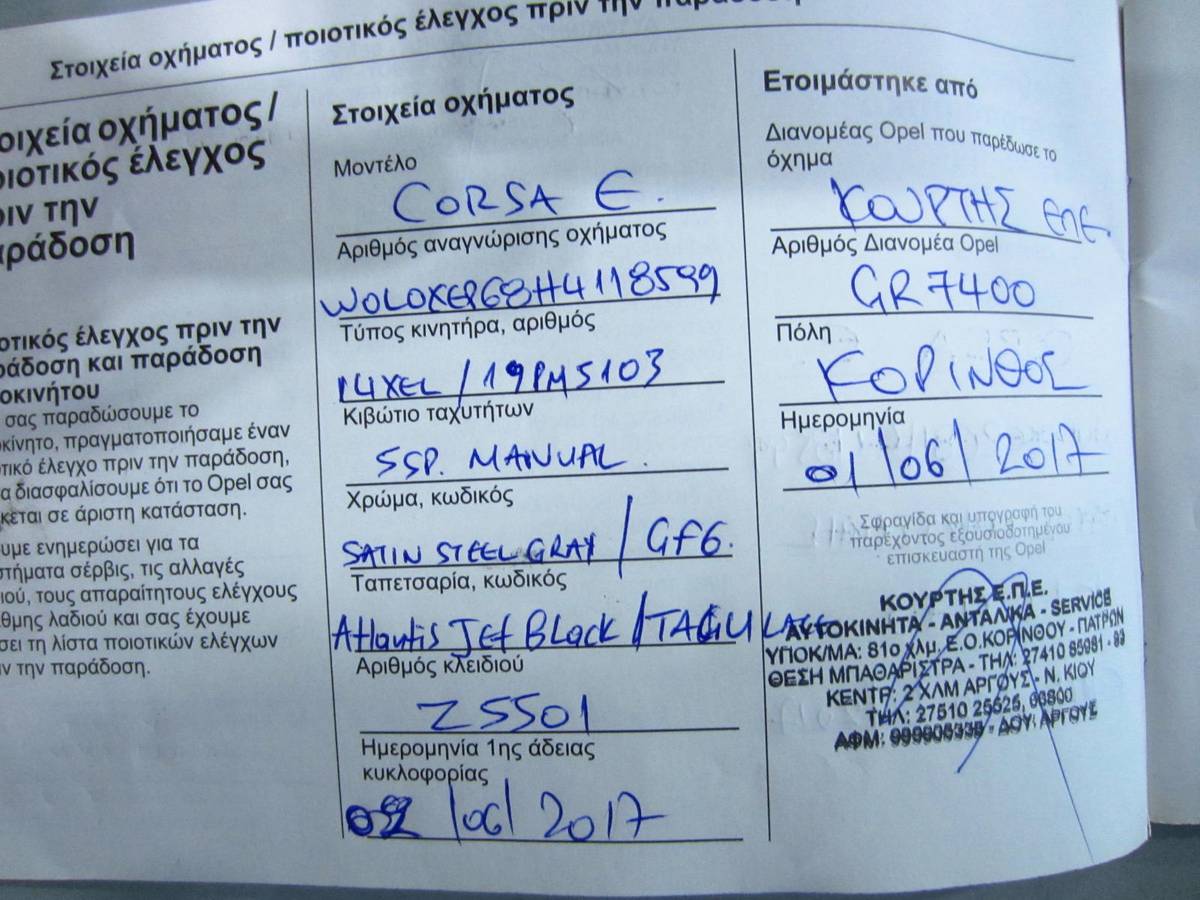 Στοιχεία οχήματος / ποιοτικός έλεγχος πριν την
οιχεία οχήματος /
οιοτικός έλεγχος
ιν την
ράδοση
οτικός έλεγχος πριν την
ράδοση και παράδοση
οκινήτου
σας παραδώσουμε το
κίνητο, πραγματοποιήσαμε έναν
τικό έλεγχο πριν την παράδοση,
α διασφαλίσουμε ότι το Opel σας
κεται σε άριστη κατάσταση.
υμε ενημερώσει για τα
στήματα σέρβις, τις αλλαγές
ιού, τους απαραίτητους ελέγχους
θμης λαδιού και σας έχουμε
σει τη λίστα ποιοτικών ελέγχων
ν την παράδοση.
Στοιχεία οχήματος
Μοντέλο
CORSA E.
Αριθμός αναγνώρισης οχήματος
W0L0XEP68H4118599
Τύπος κινητήρα, αριθμός
14XEL / 19PM5103
Κιβώτιο ταχυτήτων
5SP. MANUAL.
Χρώμα, κωδικός
SATIN STEEL GRAY / GF6.
Ταπετσαρία, κωδικός
Atlantis Jet Black /
Αριθμός κλειδιού
Z5501
Ημερομηνία 1ης άδειας
κυκλοφορίας
/06/ 2017
Ετοιμάστηκε από
Διανομέας Opel που παρέδωσε το
όχημα
ΚΟΥΡΤΗΣ ΕΠΕ.
Αριθμός Διανομέα Opel
GR7400
Πόλη
ΚΟΡΙΝΘΟΣ
Ημερομηνία
01/06/2017
Σφραγίδα και υπογραφή του
παρέχοντος εξουσιοδοτημένου
επισκευαστή της Opel
ΚΟΥΡΤΗΣ Ε.Π.Ε.
ΑΥΤΟΚΙΝΗΤΑ - ΑΝΤΑΛ/ΚΑ - SERVICE
ΥΠΟΚ/ΜΑ: 81ο ΧΛΜ. Ε.Ο.ΚΟΡΙΝΘΟΥ - ΠΑΤΡΩΝ
ΘΕΣΗ ΜΠΑΘΑΡΙΣΤΡΑ - ΤΗΛ: 27410 85981 - 83
ΚΕΝΤΡ: 2 ΧΛΜ ΑΡΓΟΥΣ - Ν. ΚΙΟΥ
ΤΗΛ: 27510 25625,
ΑΦΜ: - ΔΟΥ: ΑΡΓΟΥΣ